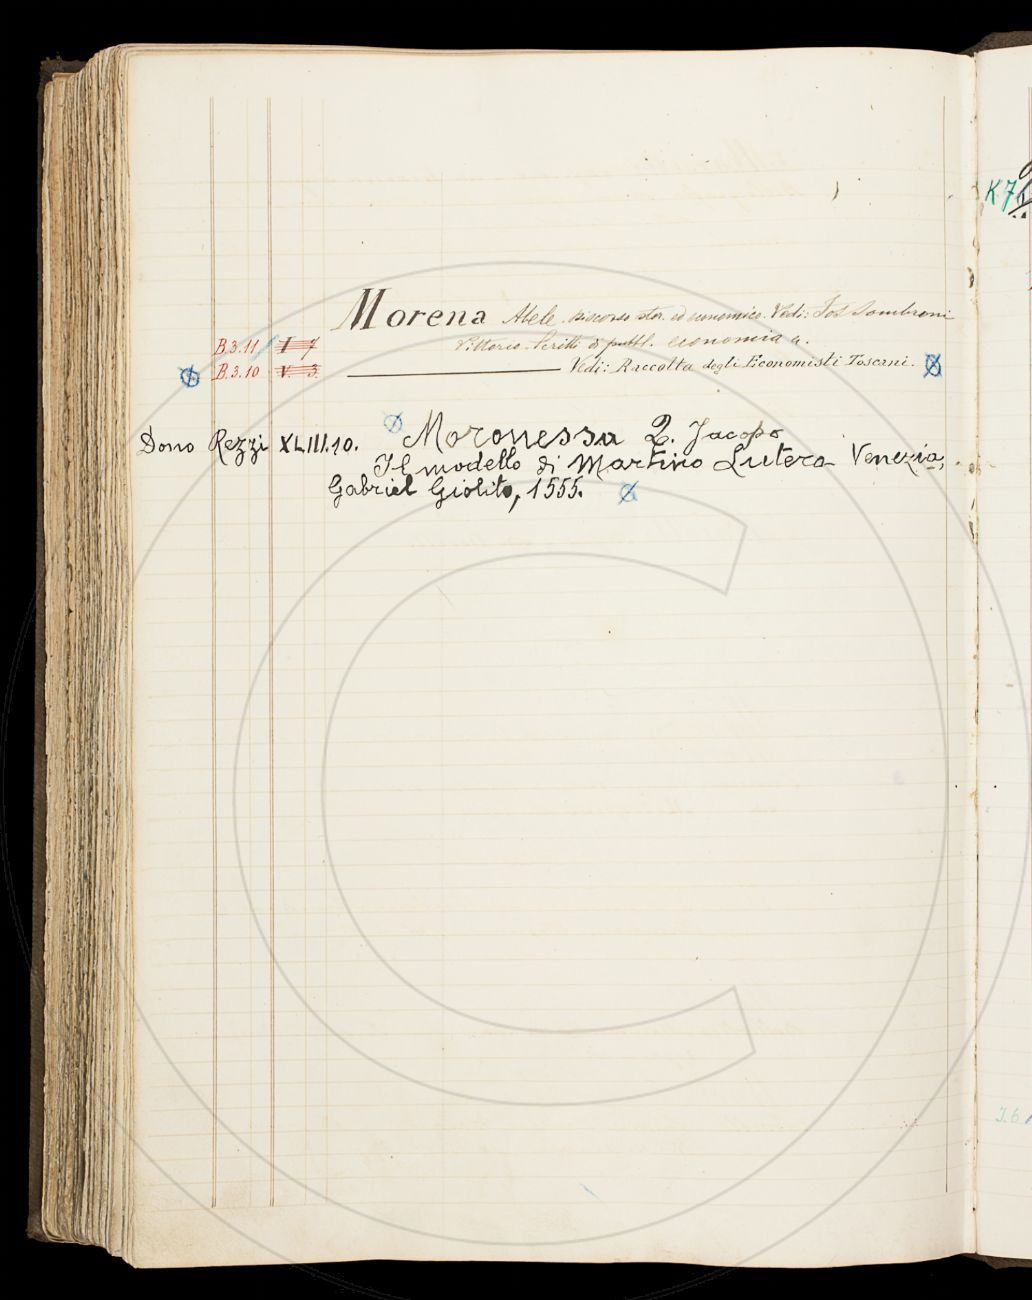 K7
Morena Abele. Discorso stor. ed economico. Vedi: Fos Sombroni
B.3.11 I 7 Vittorio. Scritti di pubbl. economia a.
B.3.10 V. 3. Vedi: Raccolta degli Economisti Toscani.
Dono Rezzi XLIII.10. Moronessa Jacopo
Il modello di Martino Lutero Venezia,
Gabriel Giolito, 1555.
J.6